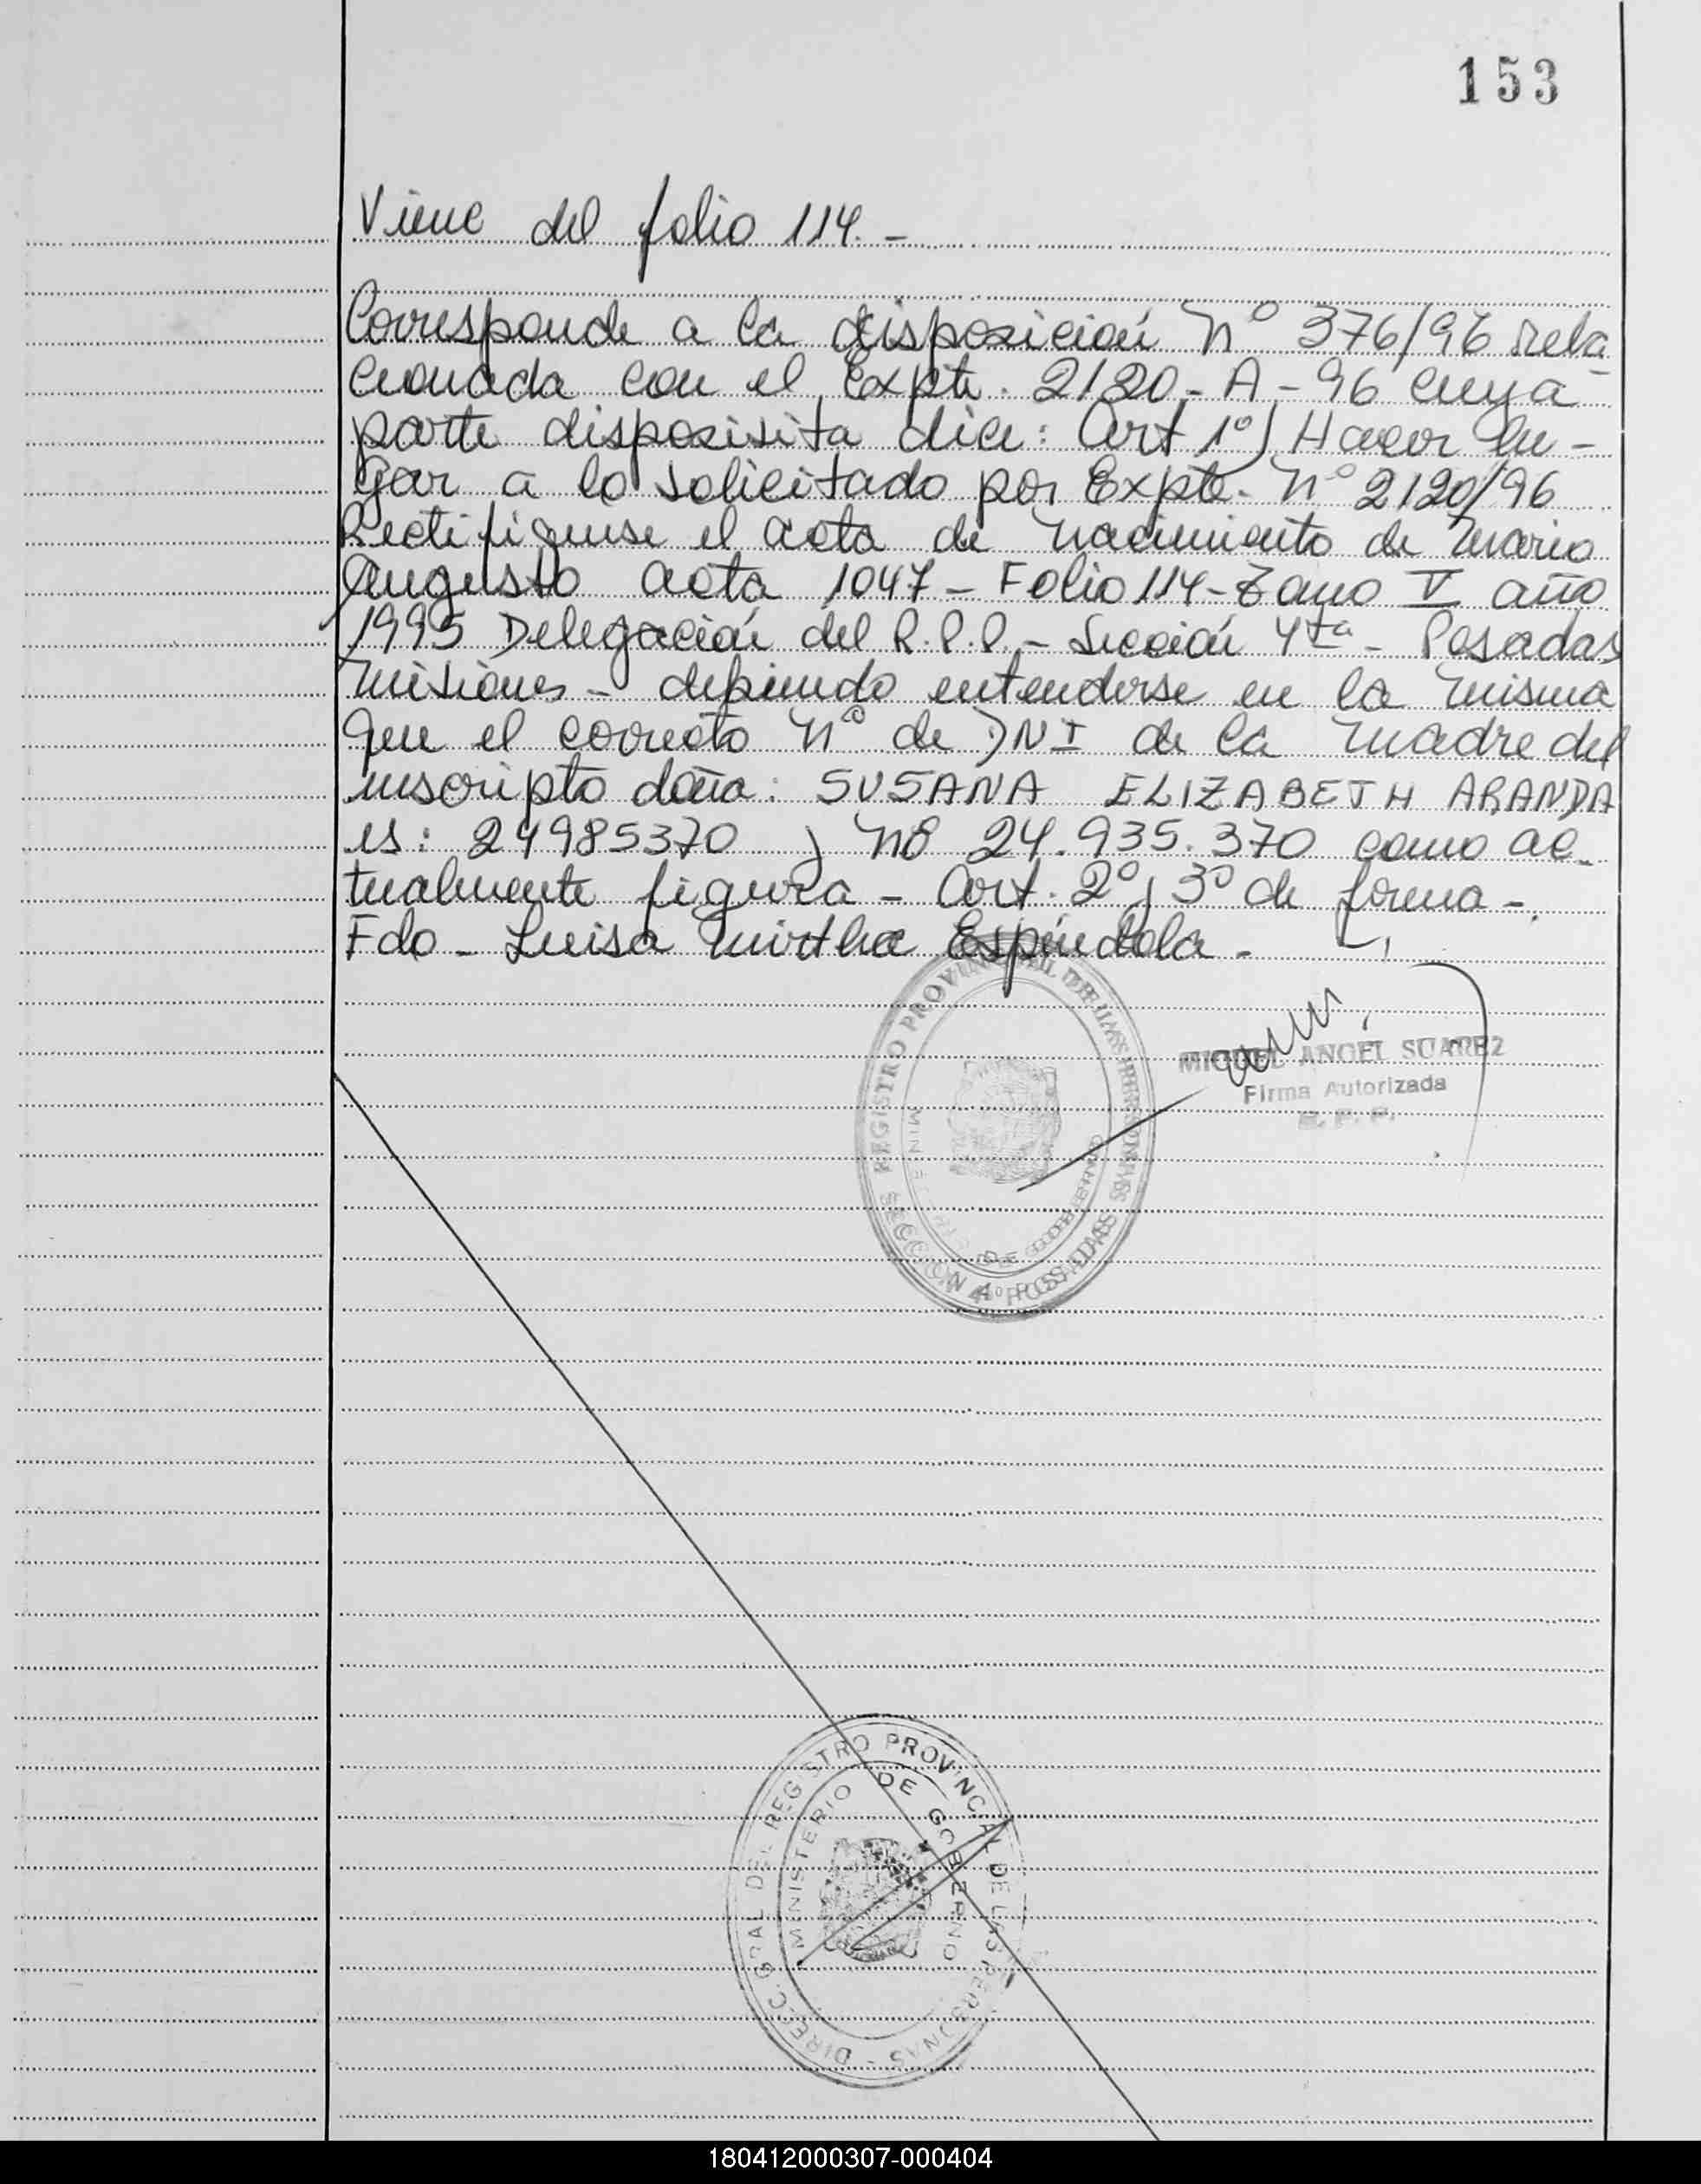 153
Viene del folio 114. -
Corresponde a la disposición Nº 376/96 rela
cionada con el Expte. 2120 - A - 96 cuya
parte dispositita dice: Art 1º) Hacer lu -
gar a lo solicitado por Expte. Nº 2120/96
Rectifiquese el acta de nacimiento de Mario
Augusto acta 1047 - Folio 114 - Tomo V año
1995 Delegación del R.P.P. - Sección 4ta - Posadas
Misiones - debiendo entenderse en la misma
que el correcto Nº de DNI de la madre del
inscripto doña: SUSANA ELIZABETH ARANDA
es: 24985370 y no 24.935.370 como ac-
tualmente figura - Art. 2º y 3º de forma -.
Fdo - Luisa Mirtha Espíndola -
REGISTRO PROVINCIAL DE LAS PERSONAS
MINISTERIO DE GOBIERNO
SECCION 4º POSADAS
MIGUEL ANGEL SUAREZ
Firma Autorizada
R. P. P.
DIRECC. GRAL DEL REGISTRO PROVINCIAL DE LAS PERSONAS -
MINISTERIO DE GOBIERNO
180412000307-000404